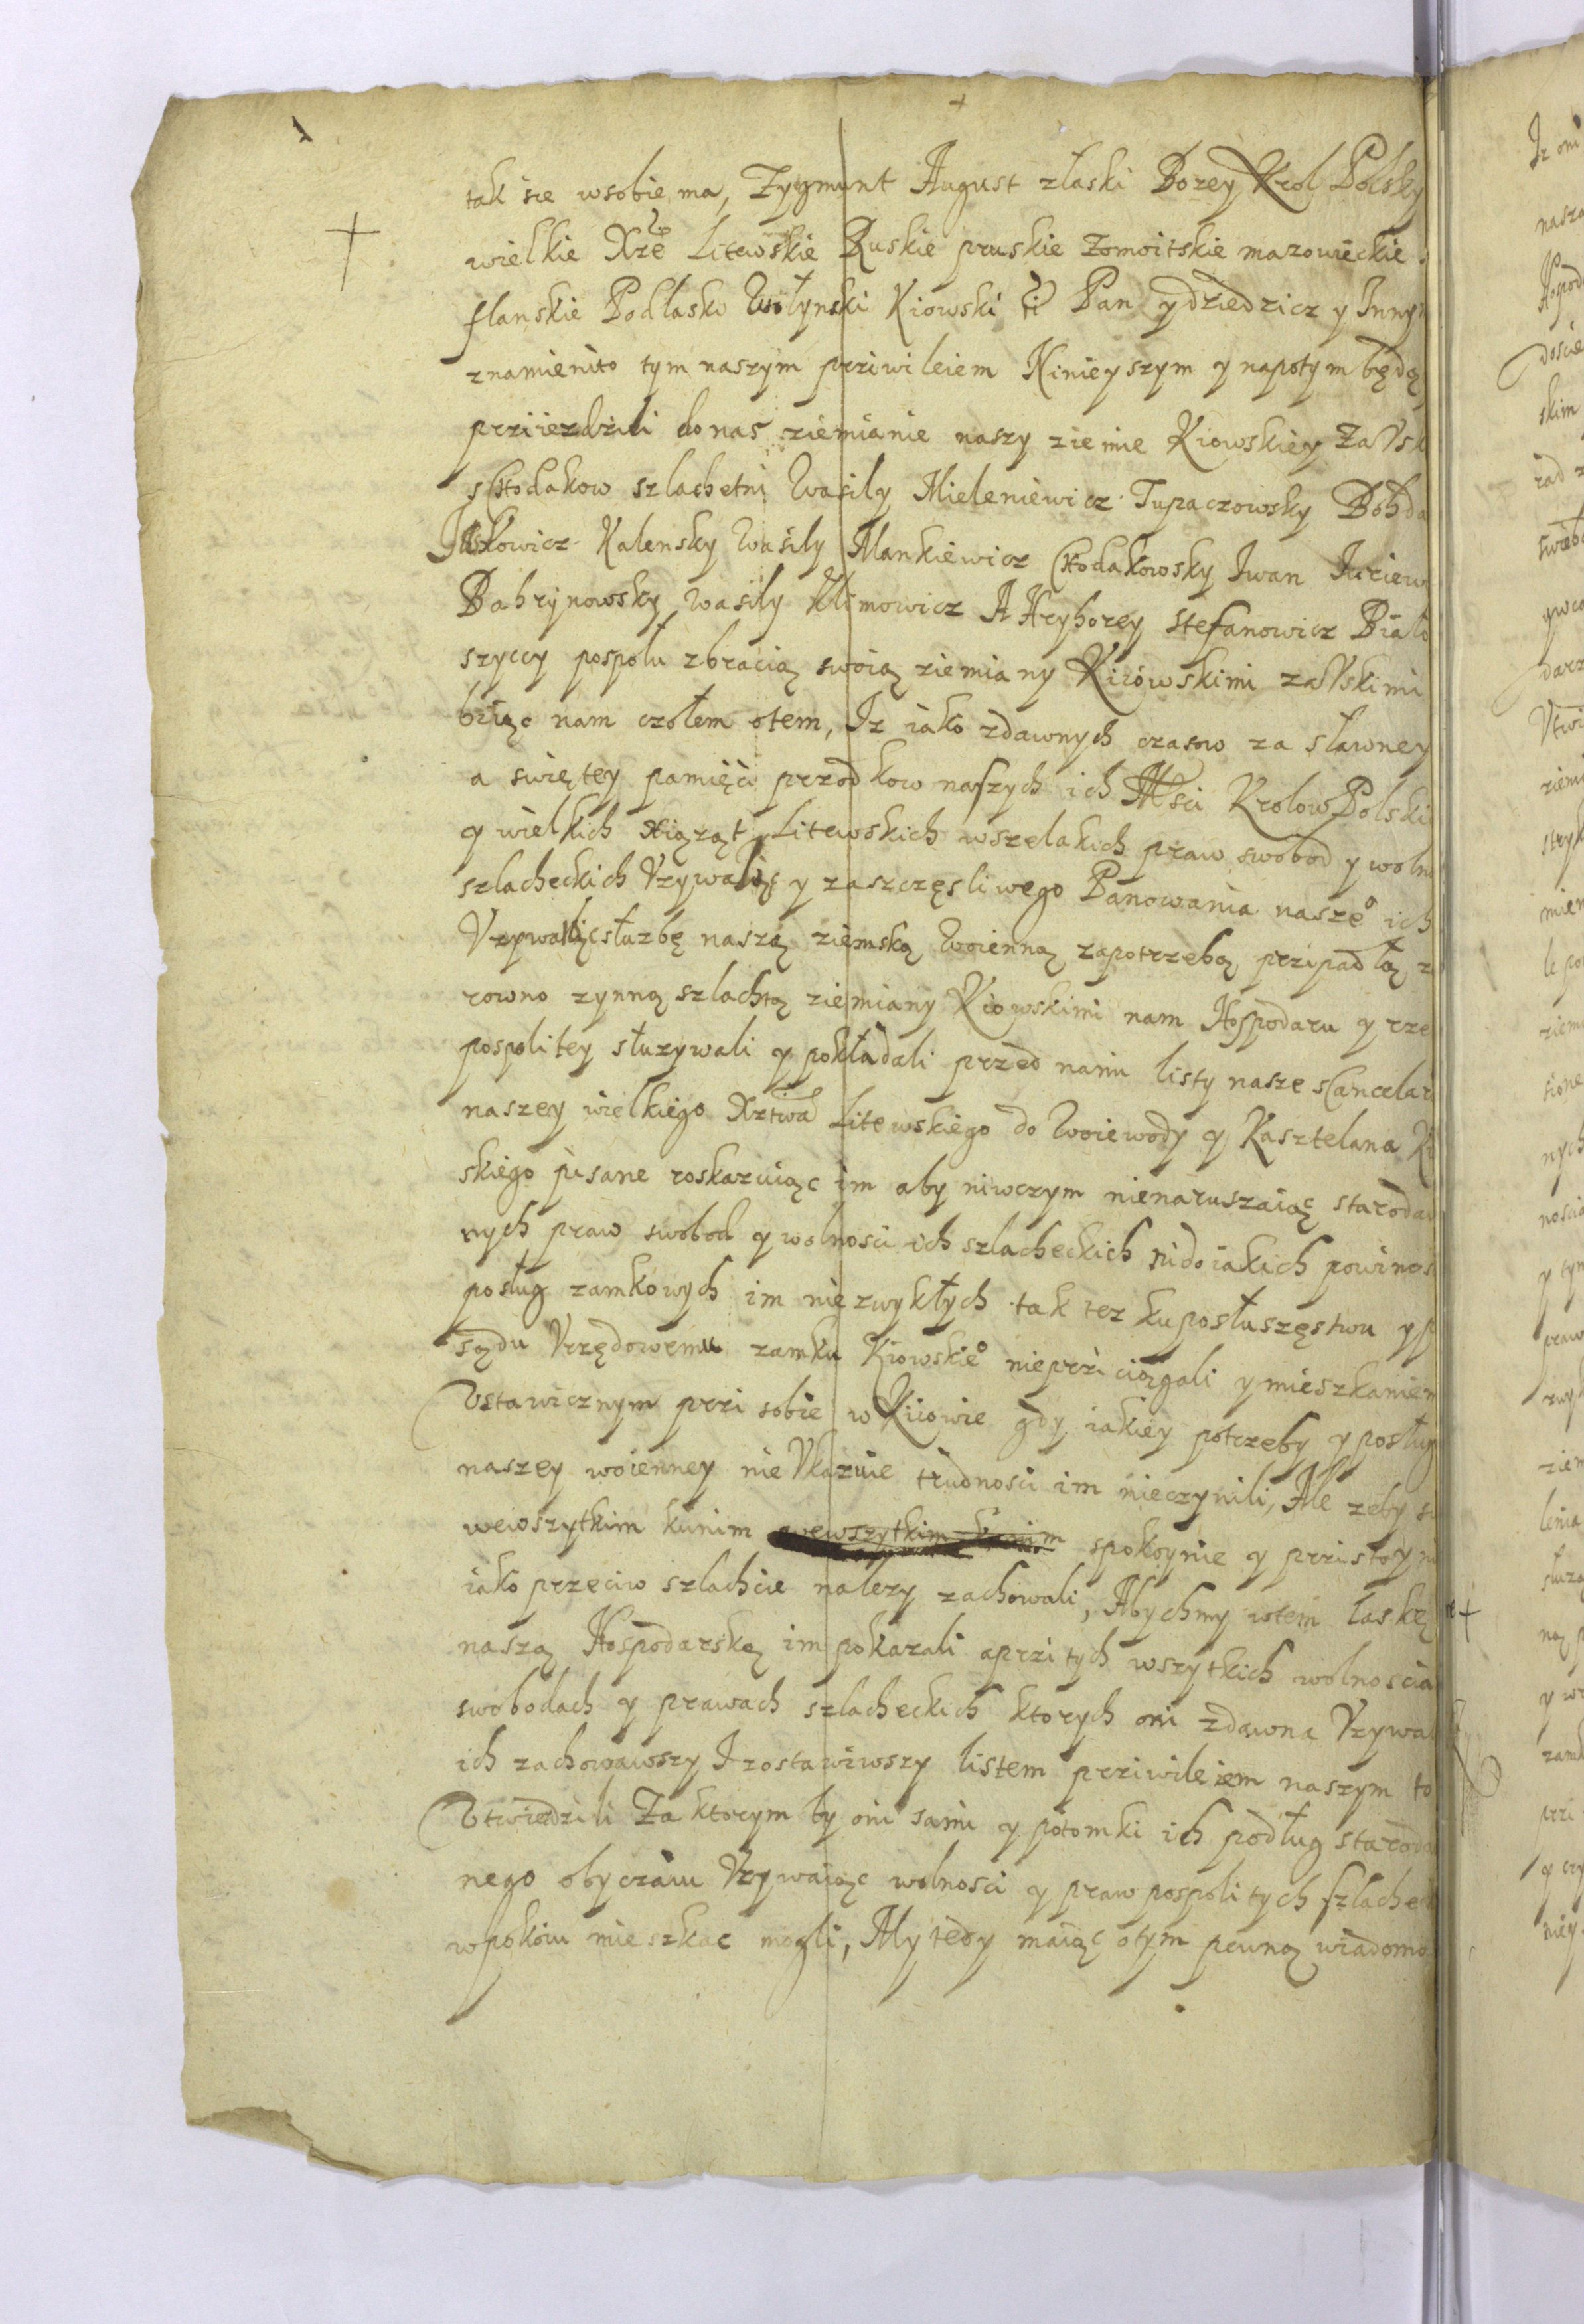 tak sie wsobie ma, Zygmunt August złaski Bozey Krol Polsky
wielkie Xże Litewskie Ruskie pruskie Zomoitskie mazowieckie
flanskie Podlaski Wołynski Kiowski Pan y dziedzicz y Innych
znamienito tym naszym priwileiem Ninieyszym y napotym będą
prziiezdzili donas ziemianie naszy ziemie Kiowskiey ZaUsk
sChodakow szlachetni Wasily Mieleniewicz Tupaczowsky Bohda
Iaskowicz Kalensky Wasily Mankiewicz Chodakowsky Iwan Iuriew
Bahrynowsky Wasily Klimowicz A Hryhorey Stefanowicz Biało
szyccy pospołu zbracią swoią ziemiany Kiiowskimi zaUskimi
biiąc nam czołem otem, Iz iako zdawnych czasow za sławney
a swiętey pamięci przodkow naszych ich Msci Krolow Polski
y wielkich Xiąząt Litewskich wszelakich praw swobod y woln
szlacheckich Vzywaiąc y zaszczęsliwego Panowania nasze° ich
Vzywaiąc słuzbę naszę ziemską Woienną zapotrzebą przipadłą z
rowno zynną szlachtą ziemiany Kiowskimi nam Hospodaru y rze
pospolitey słuzywali y pokładali przed nami listy nasze sCancelar
naszey wielkiego Xztwa Litewskiego do Woiewody y Kasztelana Ki
skiego pisane roskazuiąc im aby niwczym nienaruszaiąc starodaw
nych praw swobod y wolnosci ich szlacheckich nidoiakich powinos
posług zamkowych im niezwykłych tak tez kuposłuszęstwu y p
sądu Vrzędowemu zamku Kiowskie° nieprziciągali y mieszkaniem
Vstawicznym przi sobie w Kiiowie gdy iakiey potrzeby y posług
naszey woienney nie Vkazuie trudnosci im nieczynili, Ale zeby si
wewszytkim kunim wewszytkim kunim spokoynie y przistoyni
iako przeciw szlachcie nalezy zachowali, Abychmy wtem łaskę
naszą Hospodarską im pokazali aprzi tych wszytkich wolnoscia
swobodach y prawach szlacheckich ktorych oni zdawna Vzywal
ich zachowawszy I zostawiwszy listem priwileiem naszym to
Vtwierdzili Za ktorym by oni sami y potomki ich podług staroda
nego obyczaiu Vzywaiąc wolnosci y praw pospolitych szlachec
wpokoiu mieszkac mogli, My tedy maiąc otym pewną wiadomo